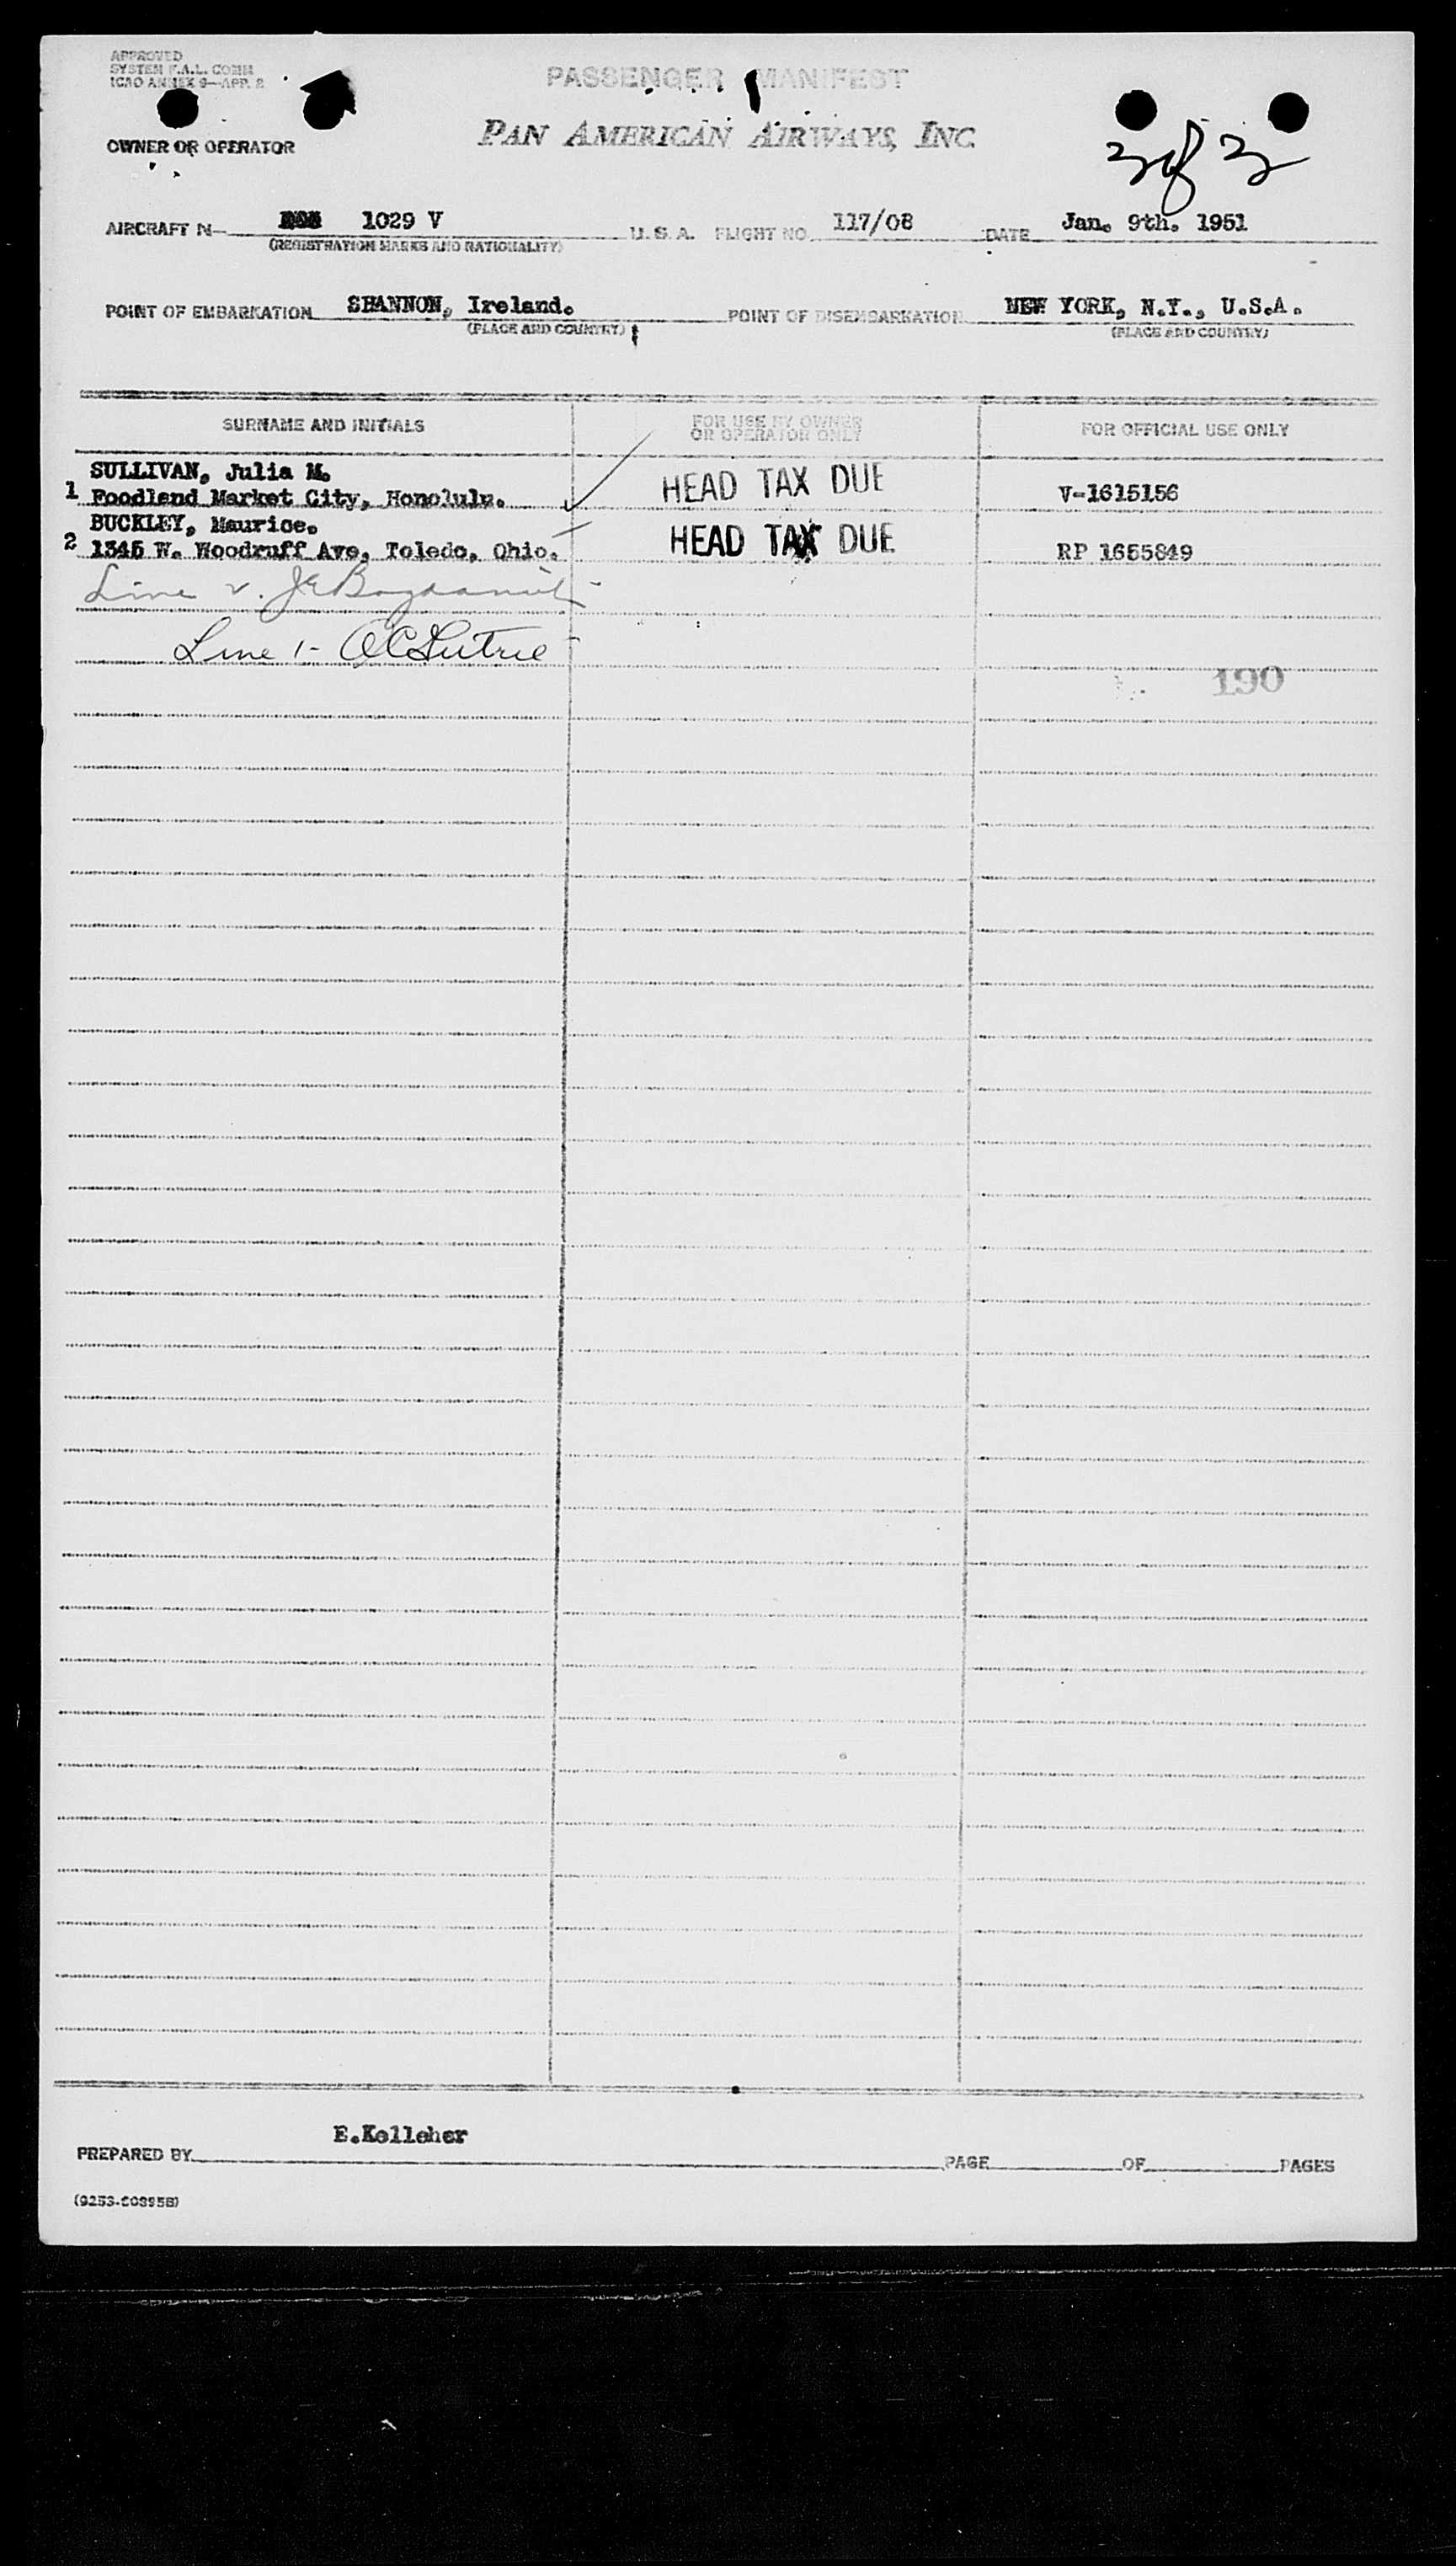 APPROVED
SYSTEM F.A.L. COMM
ICAO ANNEX 9—APP. 2
PASSENGER MANIFEST
PAN AMERICAN AIRWAYS, INC.
OWNER OR OPERATOR
2 of 2
AIRCRAFT N— 1029 V U.S.A. FLIGHT NO. 117/08 DATE Jan. 9th. 1951
(REGISTRATION MARKS AND NATIONALITY)
POINT OF EMBARKATION SHANNON, Ireland. POINT OF DISEMBARKATION NEW YORK, N.Y., U.S.A.
(PLACE AND COUNTRY) (PLACE AND COUNTRY)
SURNAME AND INITIALS FOR USE BY OWNER OR OPERATOR ONLY FOR OFFICIAL USE ONLY
SULLIVAN, Julia M.
1 Foodland Market City, Honolulu. HEAD TAX DUE V-1615156
BUCKLEY, Maurice.
2 1345 W. Woodruff Ave, Toledo, Ohio. HEAD TAX DUE RP 1655849
Line 2.
Line 1-
190
E.Kelleher
PREPARED BY PAGE OF PAGES